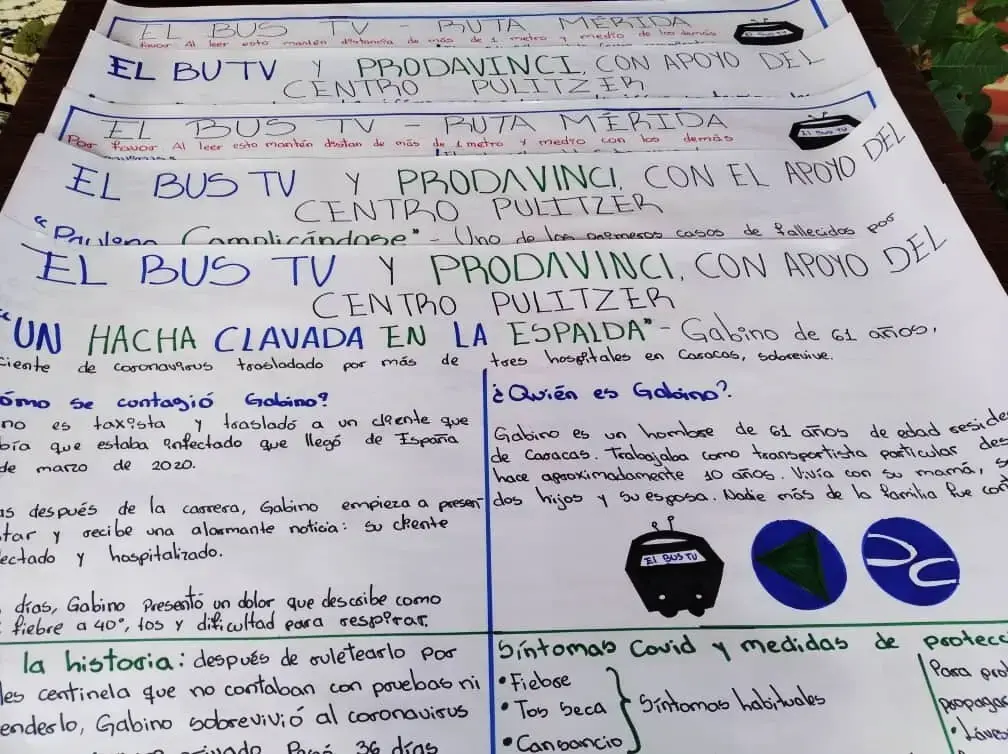 EL BUS TV - RUTA MÉRIDA
Favor Al leer esto mantén distancia de más de 1 metro y medio de los demás
EL BUTV Y PRODAVINCI, CON APOYO DEL
CENTRO PULITZER
EL BUS TV - RUTA MÉRIDA
Por favor Al leer esto mantén distan de más de 1 metro y medio con los demás
EL BUS TV
EL BUS TV Y PRODAVINCI. CON EL APOYO DEL
CENTRO PULITZER
Complicándose" - Uno de los primeros casos de fallecidos por
EL BUS TV Y PRODAVINCI, CON APOYO DEL
CENTRO PULITZER
"UN HACHA CLAVADA EN LA ESPALDA" - Gabino de 61 años,
ciente de coronavirus trasladado por más de tres hospitales en Caracas, sobrevive.
ómo se contagió Gabino?
no es taxista y trasladó a un cliente que
bía que estaba infectado que llegó de España
de marzo de 2020.
as después de la carrera, Gabino empieza a presen
tar y recibe una alarmante noticia: su cliente
ectado y hospitalizado.
días, Gabino Presentó un dolor que describe como
fiebre a 40°, tos y dificultad para respirar.
¿Quién es Gabino?
Gabino es un hombre de 61 años de edad reside
de Caracas. Trabajaba como transportista particular des
hace aproximadamente 10 años. Vivía con su mamá, s
dos hijos y su esposa. Nadie más de la familia fue con
El BUS TV
la historia: después de ruletearlo por
les centinela que no contaban con pruebas ni
enderlo, Gabino sobrevivió al coronavirus
Pasó 36 días
Síntomas Covid y medidas de protecc
• Fiebre
• Tos Seca
• Cansancio
Síntomas habituales
Para pro
propagac
• Lávar